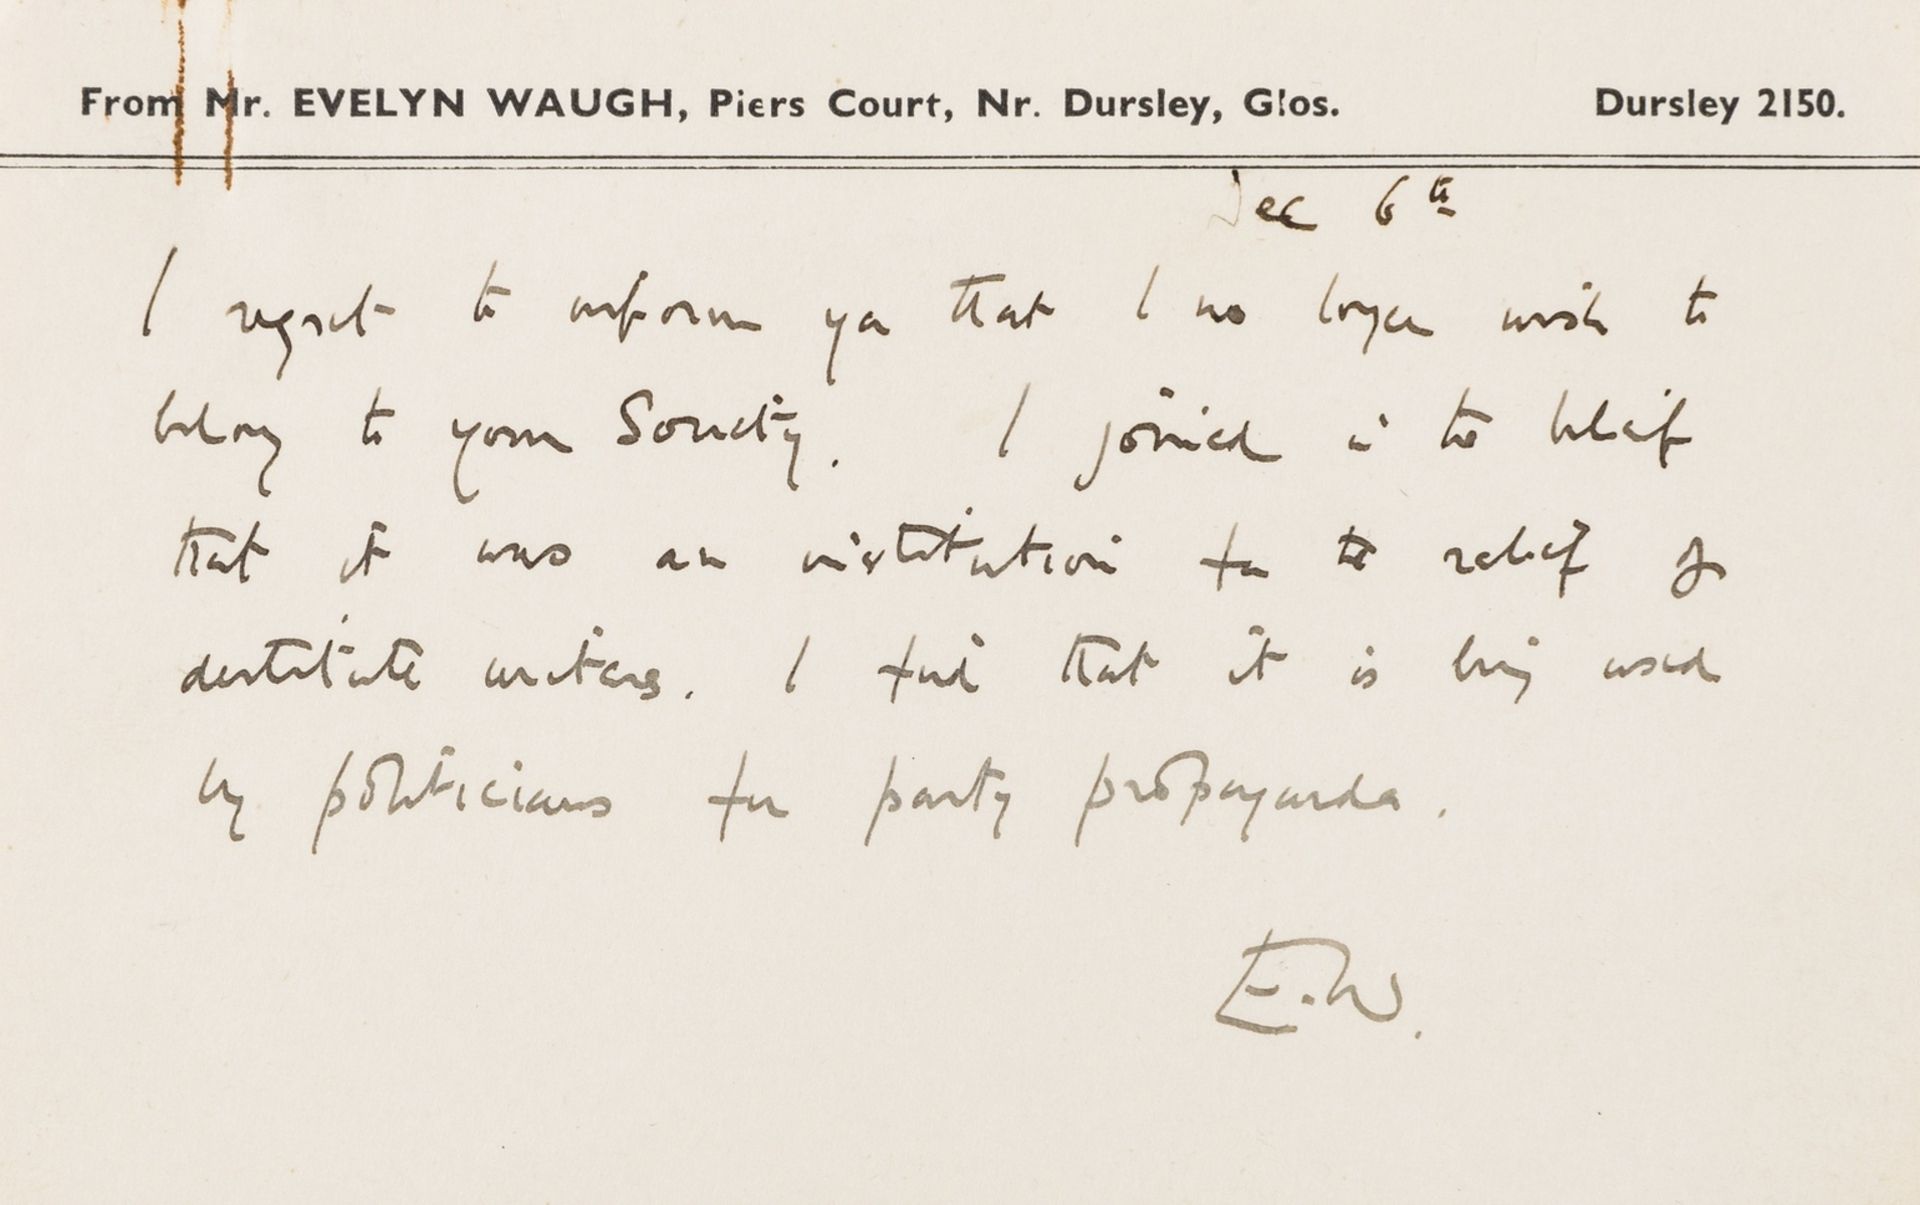 From Mr. EVELYN WAUGH, Piers Court, Nr. Dursley, Glos. Dursley 2150.
Dec 6th
I regret to inform you that I no longer wish to
belong to your Society. I joined in the belief
that it was an institution for the relief of
destitute writers. I find that it is being used
by politicians for party propaganda.
E.W.